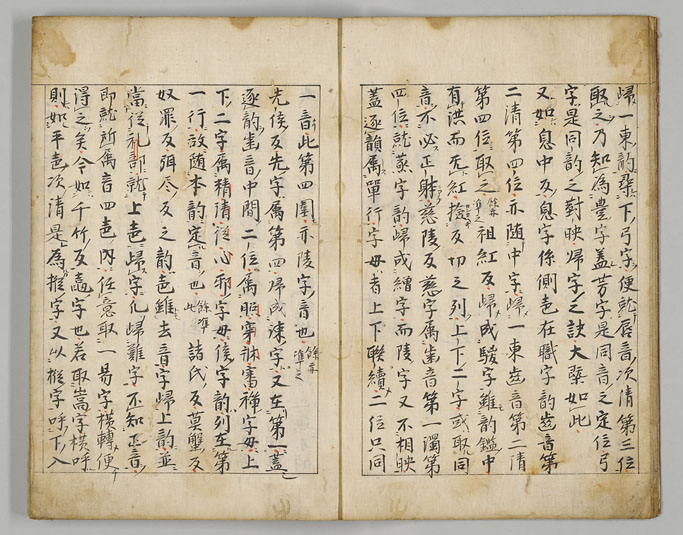 歸一東韵尋下弓字便就唇音次清第三位
取之乃知為豊字盖芳字是同音之定位弓
字是同韵之對映歸字之訣大槩如此
又如息中反息字係側聲在職字韵齒音第
二清第四位亦随中字歸一東齒音第二清
第四位取之餘皆準之祖紅反歸成騣字雖韵鑑中
有洪而无紅撿反切之列上下二字或取同
音不必正躰慈陵反慈字属齒音第一濁第
四位就蒸字韵歸成繒字而陵字又不相映
盖逐韻属單行字母者上下聯續二位只同
一音此第四圍亦陵字音也餘皆準之
先侯反先字属第四歸成涑字又在第一盖
逐韵齒音中間二位属照穿牀審禪字母上
下二字属精清從心邪字母侯字韵列在第
一行故随本韵定音也餘準此諸氏反莫蟹反
奴罪反弭尽反之韵聲雖去音字歸上韵並
當從礼部就上聲歸字凡歸難字不知正音
即就所属音四聲內任意取一易字横轉便
得之矣今如千竹反䆿字也若取嵩字横呼
則知平聲次清是為樅字又以樅字呼下入